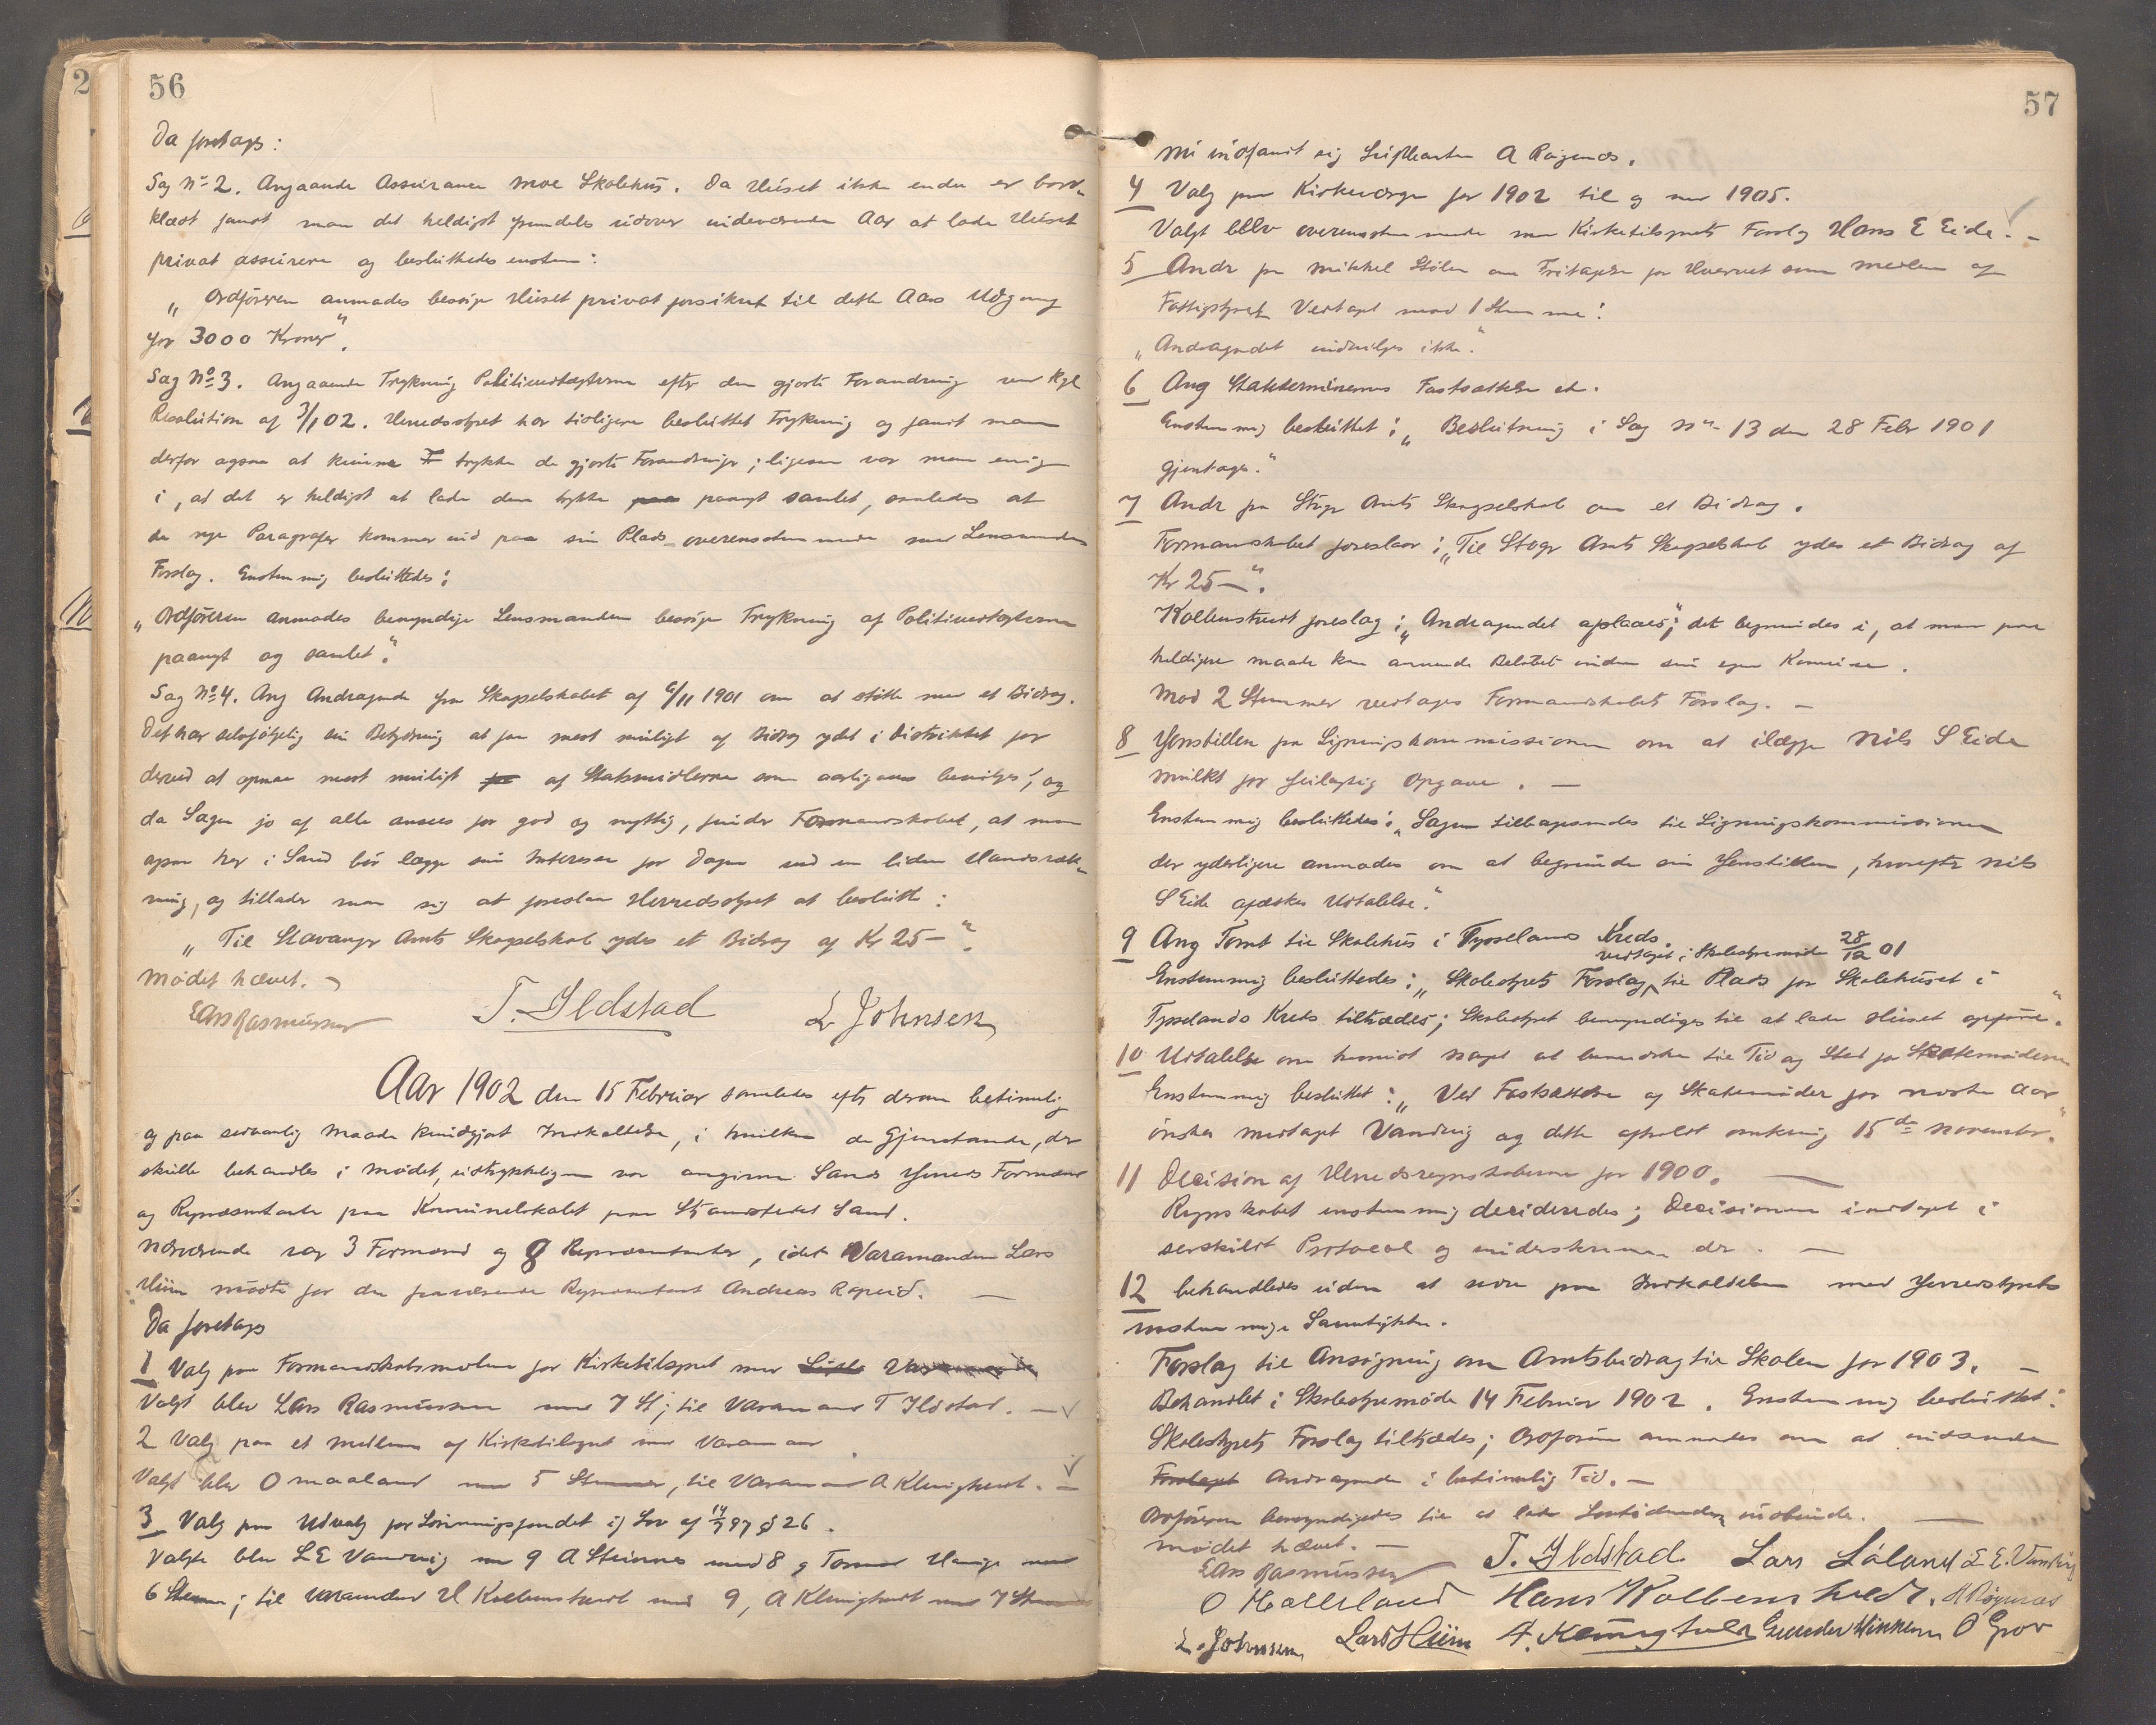 56
Da foretages:
Sag No 2. Angaaende Assurance Moe Skolehus. Da Huset ikke endu er bord-
klædt fandt man det heldigst fremdeles udover indeværende Aar at lade Huset
privat assurere og besluttedes enstem:
„Ordføreren anmodes besørge Huset privat forsikret til dette Aars Udgang
for 3000 Kroner".
Sag No 3. Angaaende Trykning Politivedtægterne efter den gjorte Forandring ved Kgl
Resolution af 3/1 02. Herredsstyret har tidligere besluttet Trykning og fandt man
derfor ogsaa at kunne trykke de gjorte Forandringer; ligesom var man enig
i, at det er heldigst at lade dem trykke paanyt samlet, saaledes at
de nye Paragrafer kommer ind paa sin Plads overensstemmende med Lensmandens
Forslag. Enstemmig besluttedes:
„Ordføreren anmodes bemyndige Lensmanden besørge Trykning af Politivedtægterne
paanyt og samlet".
Sag No 4. Ang Andragende fra Skogselskabet af 6/11 1901 om at støtte med et Bidrag.
Det har selvfølgelig sin Betydning at faa mest muligt af Bidrag ydet i Distriktet for
derved at opnaa mest muligt af Statsmidlerne som aarligaars bevilges; og
da Sagen jo af alle ansees for god og nyttig, finder Formandskabet, at man
ogsaa her i Sand bør lægge sin Interesse for Dagen ved en liden Haandsræk-
ning, og tillader man sig at foreslaa Herredsstyret at beslutte:
„Til Stavanger Amts Skogselskab ydes et Bidrag af Kr 25—".
Mødet hævet. —
Lars Rasmussen T. Ildstad L Johnsen
Aar 1902 den 15 Februar samledes efter dertil betimelig
og paa sedvanlig Maade kundgjort Indkaldelse, i hvilken de Gjenstande, der
skulde behandles i Mødet, udtrykkeligen var angivne Sands Herreds Formænd
og Repræsentanter paa Kommunelokalet paa Strandstedet Sand.
Nærværende var 3 Formænd og 8 Repræsentanter, idet Varamanden Lars
Hiim mødte for den fraværende Repræsentant Andreas Rapeid. —
Da foretages
1 Valg paa Formandskabsmedlem for Kirketilsynet med
Valgt blev Lars Rasmussen med 7 St; til Varamand T Ildstad. —
2 Valg paa et Medlem af Kirketilsynet med Varamand
Valgt blev O Maaland med 5 Stemmer, til Varamand A Klungtvedt. —
3 Valg paa Udvalg for Lønningsfondet efter Lov af 14/7 97 § 26.
Valgte blev L E Vandvig med 9 A Steinnes med 8 og Tormod med
6 Stemmer; til Varamænd H Kolbenstvedt med 9, A Klungtvedt med 7 Stemmer
57
Nu indfandt sig A Røgenæs.
4 Valg paa Kirkeværge for 1902 til og med 1905.
Valgt blev overensstemmende med Kirketilsynets Forslag Hans E Eide. —
5 Andr fra Mikkel Stølen om Fritagelse for Hvervet som Medlem af
Fattigstyret Vedtaget mod 1 Stemme:
„Andragendet indvilges ikke."
6 Ang Skatterminernes Fastsættelse etc.
Enstemmig besluttet: „Beslutning i Sag No 13 den 28 Febr 1901
gjentages."
7 Andr fra Stvgr Amts Skogselskab om et Bidrag.
Formandskabet foreslaar: „Til Stvgr Amts Skogselskab ydes et Bidrag af
Kr 25—".
Kolbenstvedt foreslog: „Andragendet afslaaes"; det begrundes i, at man paa
heldigere Maade kan anvende Beløbet inden sin egen Kommune.
Mod 2 Stemmer vedtages Formandskabets Forslag. —
8 Henstillen fra Ligningskommissionen om at ilægge Nils S Eide
Mulkt for feilagtig Opgave. —
Enstemmig besluttedes: „Sagen tilbagesendes til Ligningskommissionen
der yderligere anmodes om at begrunde sin Henstillen, hvorefter Nils
S Eide afæskes Udtalelse."
9 Ang Tomt til Skolehus i Tysselands Kreds.
vedtaget i Skolestyremøde 28/12 01
Enstemmig besluttedes: „Skolestyrets Forslag til Plads for Skolehuset i
Tysselands Kreds tiltrædes; Skolestyret bemyndiges til at lade Huset opføre".
10 Udtalelse om hvorvidt noget at bemærke til Tid og Sted for Skattemøderne
Enstemmig besluttet: „Ved Fastsættelse af Skattemøder for næste Aar
ønskes medtaget Vandvig og dette afholdt omkring 15de November."
11 Decision af Herredsregnskaberne for 1900. —
Regnskabet enstemmig decideredes; Decisionen indtaget i
serskildt Protocol og underskreven der. —
12 behandledes uden at være paa Indkaldelsen med Herredstyrets
enstemmige Samtykke.
Forslag til Ansøgning om Amtsbidrag til Skolen for 1903. —
Behandlet i Skolestyremøde 14 Februar 1902. Enstemmig besluttet:
Skolestyrets Forslag tiltrædes; Ordføreren anmodes om at indsende
Andragende i betimelig Tid. —
Ordføreren bemyndigedes til at lade Lovtidende indbinde. —
Mødet hævet. —
Lars Rasmussen T. Ildstad Lars Løland L E. Vandvig
O Maaland Hans Kolbenstvedt. A Røgenæs
L. Johnsen Lars Hiim A. Klungtvedt Gunder O Grov